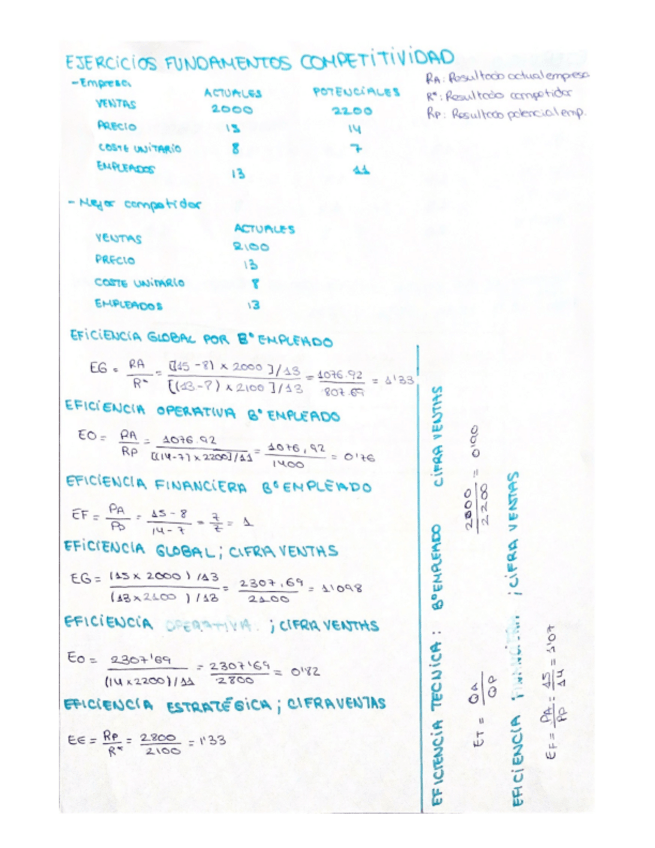 EJERCICIOS FUNDAMENTOS COMPETITIVIDAD
RA: Resultado actual empresa
R*: Resultado competidor
RP: Resultado potencial emp.
- Empresa
ACTUALES POTENCIALES
VENTAS 2000 2200
PRECIO 15 14
COSTE UNITARIO 8 7
EMPLEADOS 13 11
- Mejor competidor
ACTUALES
VENTAS 2100
PRECIO 13
COSTE UNITARIO 8
EMPLEADOS 13
EFICIENCIA GLOBAL POR Bº EMPLEADO
EG = RA / R* = [(15-8) x 2000] / 13 / [(13-8) x 2100] / 13 = 1076.92 / 807.69 = 1'33
EFICIENCIA OPERATIVA Bº EMPLEADO
EO = RA / RP = 1076.92 / [(14-7) x 2200] / 11 = 1076,92 / 1400 = 0'76
EFICIENCIA FINANCIERA Bº EMPLEADO
EF = PA / PP = 15-8 / 14-7 = 7 / 7 = 1
EFICIENCIA GLOBAL; CIFRA VENTAS
EG = (15 x 2000) / 13 / (13 x 2100) / 13 = 2307,69 / 2100 = 1'098
EFICIENCIA OPERATIVA ; CIFRA VENTAS
EO = 2307'69 / (14 x 2200) / 11 = 2307'69 / 2800 = 0'82
EFICIENCIA ESTRATÉGICA; CIFRA VENTAS
EE = RP / R* = 2800 / 2100 = 1'33
EFICIENCIA TECNICA: Bº EMPLEADO CIFRA VENTAS
ET = QA / QP
2000 / 2200 = 0'90
EFICIENCIA FINANCIERA ; CIFRA VENTAS
EF = PA / PP = 15 / 14 = 1'07